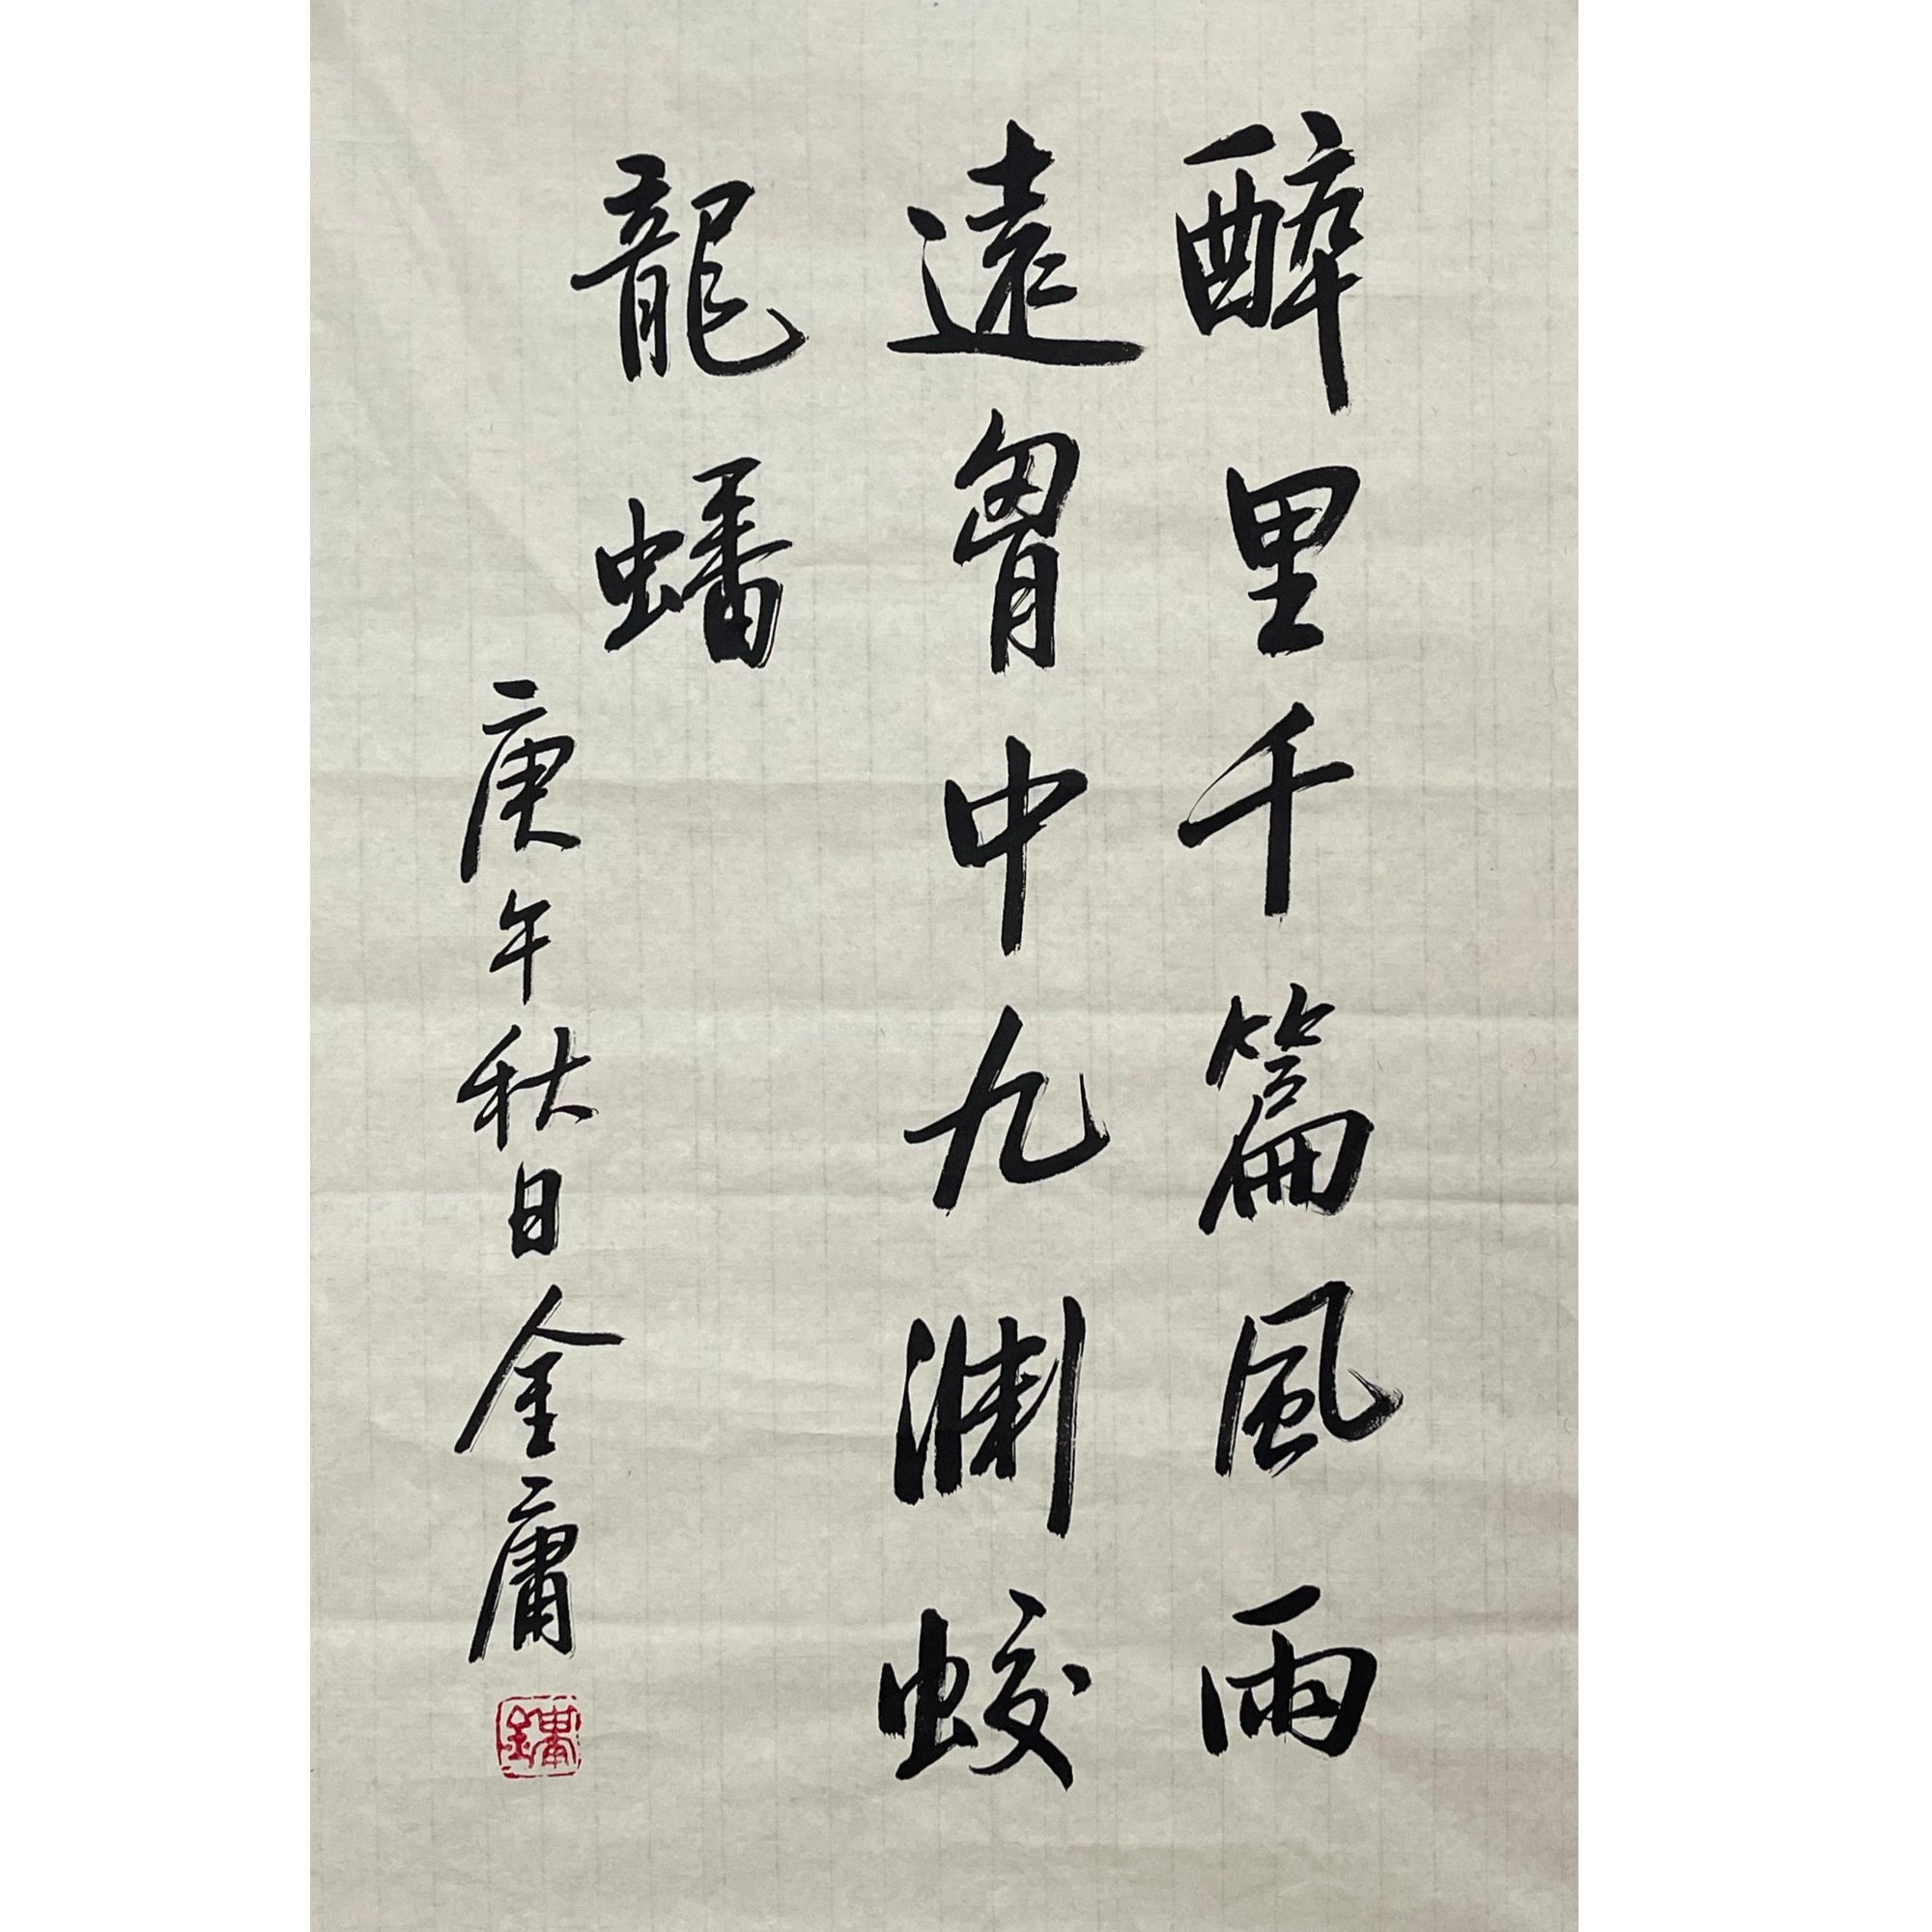 醉里千篇風雨
遠胷中九渊蛟
龍蟠
庚午秋日金庸